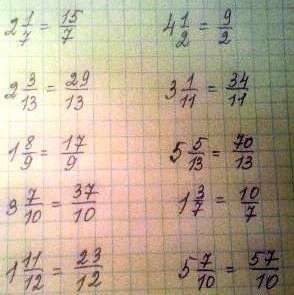 2 1/7 = 15/7    4 1/2 = 9/2
2 3/13 = 29/13    3 1/11 = 34/11
1 8/9 = 17/9    5 5/13 = 70/13
3 7/10 = 37/10    1 3/7 = 10/7
1 11/12 = 23/12    5 7/10 = 57/10